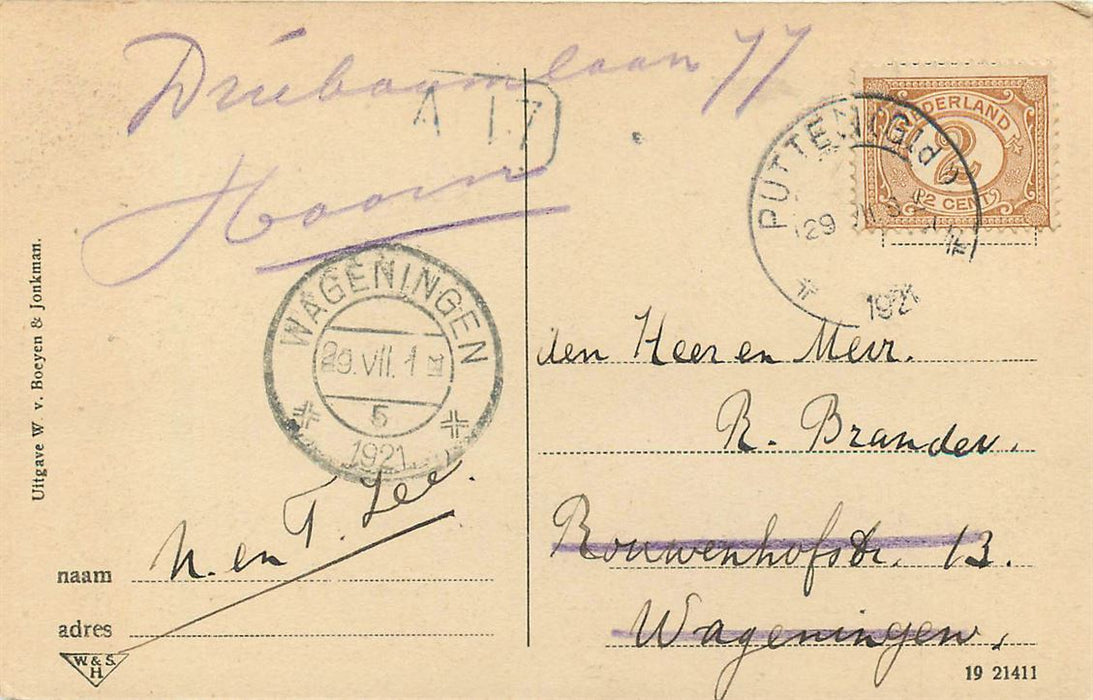 Drieboomlaan 77
A 17
Hoorn
Uitgave W. v. Boeyen & Jonkman.
NEDERLAND
2½
2½ CENT
PUTTEN (Gld)
29 VII
1921
WAGENINGEN
29.VII. 1
5
1921
den Heer en Mevr.
R. Brander.
Rouwenhofstr. 13.
Wageningen.
naam N. en T. Lee.
adres
W. & S.
H
19 21411